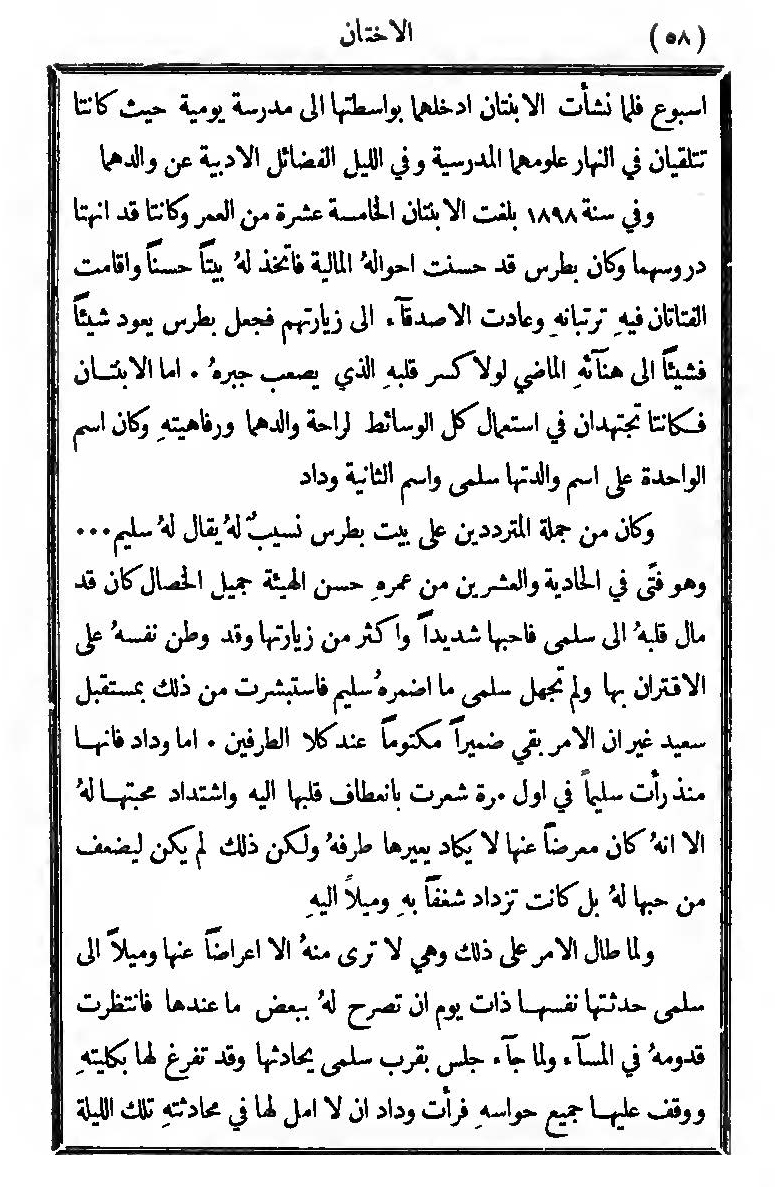 (٥٨) الاختان
اسبوع فلما نشأت الابنتان ادخلهما بواسطتها الى مدرسة يومية حيث كانتا
تتلقيان في النهار علومهما المدرسية وفي الليل الفضائل الادبية عن والدهما
وفي سنة ١٨٩٨ بلغت الابنتان الخامسة عشرة من العمر وكانتا قد انهتا
دروسهما وكان بطرس قد حسنت احوالهُ المالية فاتخذ لهُ بيتاً حسناً واقامت
الفتاتان فيهِ ترتبانهِ وعادت الاصدقآء الى زيارتهم فجعل بطرس يعود شيئاً
فشيئاً الى هنآئهِ الماضي لولا كسر قلبهِ الذي يصعب جبرهُ ٠ اما الابنتان
فكانتا تجتهدان في استعمال كل الوسائط لراحة والدهما ورفاهيتهِ وكان اسم
الواحدة على اسم والدتها سلمى واسم الثانية وداد
وكان من جملة المترددين على بيت بطرس نسيبٌ لهُ يقال لهُ سليم...
وهو فتًى في الحادية والعشرين من عمرهِ حسن الهيئة جميل الخصال كان قد
مال قلبهُ الى سلمى فاحبها شديداً واكثر من زيارتها وقد وطن نفسهُ على
الاقتران بها ولم تجهل سلمى ما اضمرهُ سليم فاستبشرت من ذلك بمستقبل
سعيد غير ان الامر بقي ضميراً مكتوماً عند كلا الطرفين ٠ اما وداد فانها
منذ رأت سليماً في اول مرة شعرت بانعطاف قلبها اليه واشتداد محبتها لهُ
الا انهُ كان معرضاً عنها لا يكاد يعيرها طرفهُ ولكن ذلك لم يكن ليضعف
من حبها لهُ بل كانت تزداد شغفاً بهِ وميلاً اليهِ
ولما طال الامر على ذلك وهي لا ترى منهُ الا اعراضاً عنها وميلاً الى
سلمى حدثتها نفسها ذات يوم ان تصرح لهُ ببعض ما عندها فانتظرت
قدومهُ في المسآء ولما جآء جلس بقرب سلمى يحادثها وقد تفرغ لها بكليتهِ
ووقف عليها جميع حواسهِ فرأت وداد ان لا امل لها في محادثتهِ تلك الليلة